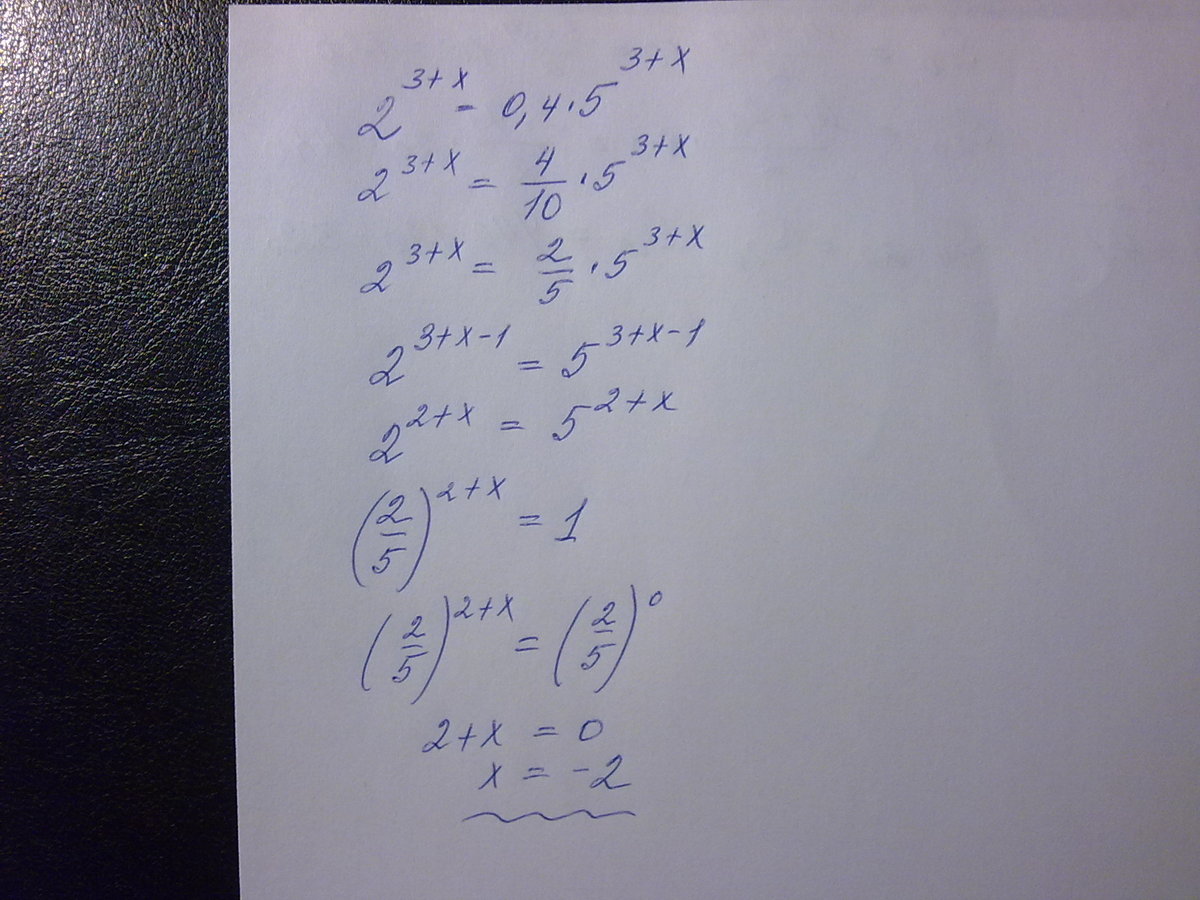 2^{3+x} = 0,4 · 5^{3+x}
2^{3+x} = \frac{4}{10} · 5^{3+x}
2^{3+x} = \frac{2}{5} · 5^{3+x}
2^{3+x-1} = 5^{3+x-1}
2^{2+x} = 5^{2+x}
(\frac{2}{5})^{2+x} = 1
(\frac{2}{5})^{2+x} = (\frac{2}{5})^{0}
2+x = 0
x = -2